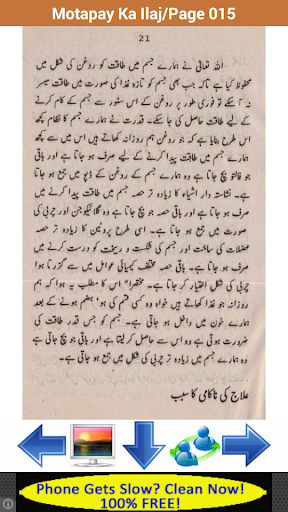 Motapay Ka Ilaj/Page 015
21
اللہ تعالیٰ نے ہمارے جسم میں طاقت کو روغن کی شکل میں
محفوظ کیا ہے تاکہ جب بھی جسم کو تازہ غذا کی صورت میں طاقت میسر
نہ آسکے تو فوری طور پر روغن کے اس سٹور سے جسم کے کام کرنے
کے لیے طاقت حاصل کی جا سکے۔ قدرت نے ہمارے جسم کا نظام کچھ
اس طرح بنایا ہے کہ جو روغن ہم روزانہ کھاتے ہیں اس میں سے کچھ
ہمارے جسم میں طاقت پیدا کرنے کے لیے صرف ہو جاتا ہے اور باقی
جو فالتو بچ جاتا ہے۔ ہمارے جسم کے روغن کے ڈپو میں جمع ہو جاتا
ہے۔ نشاستہ دار اشیاء کا زیادہ تر حصہ جسم میں طاقت پیدا کرنے میں
صرف ہو جاتا ہے اور باقی حصہ جو بچ جاتا ہے وہ گلائیکوجن اور چربی کی
شکل میں جمع ہو جاتا ہے۔ اسی طرح پروٹین کا زیادہ تر حصہ
عضلات کی ساخت اور جسم کی شکست و ریخت کو درست کرنے میں
صرف ہو جاتا ہے۔ باقی حصہ مختلف کیمیائی عوامل میں سے گزرتا ہوا
چربی کی شکل اختیار کر جاتا ہے۔ مختصراً" اس کا مطلب یہ ہوا کہ ہم
روزانہ جو غذا کھاتے ہیں خواہ وہ کسی قسم کی ہو' ہضم ہونے کے بعد
ہمارے خون میں داخل ہو جاتی ہے۔ جسم کو جس قدر طاقت کی
ضرورت ہوتی ہے وہ اس سے حاصل کر لیتا ہے اور باقی جو بچ جاتی ہے
وہ ہمارے جسم میں زیادہ تر چربی کی شکل میں جمع ہو جاتی ہے۔
علاج کی ناکامی کا سبب
Phone Gets Slow? Clean Now!
100% FREE!